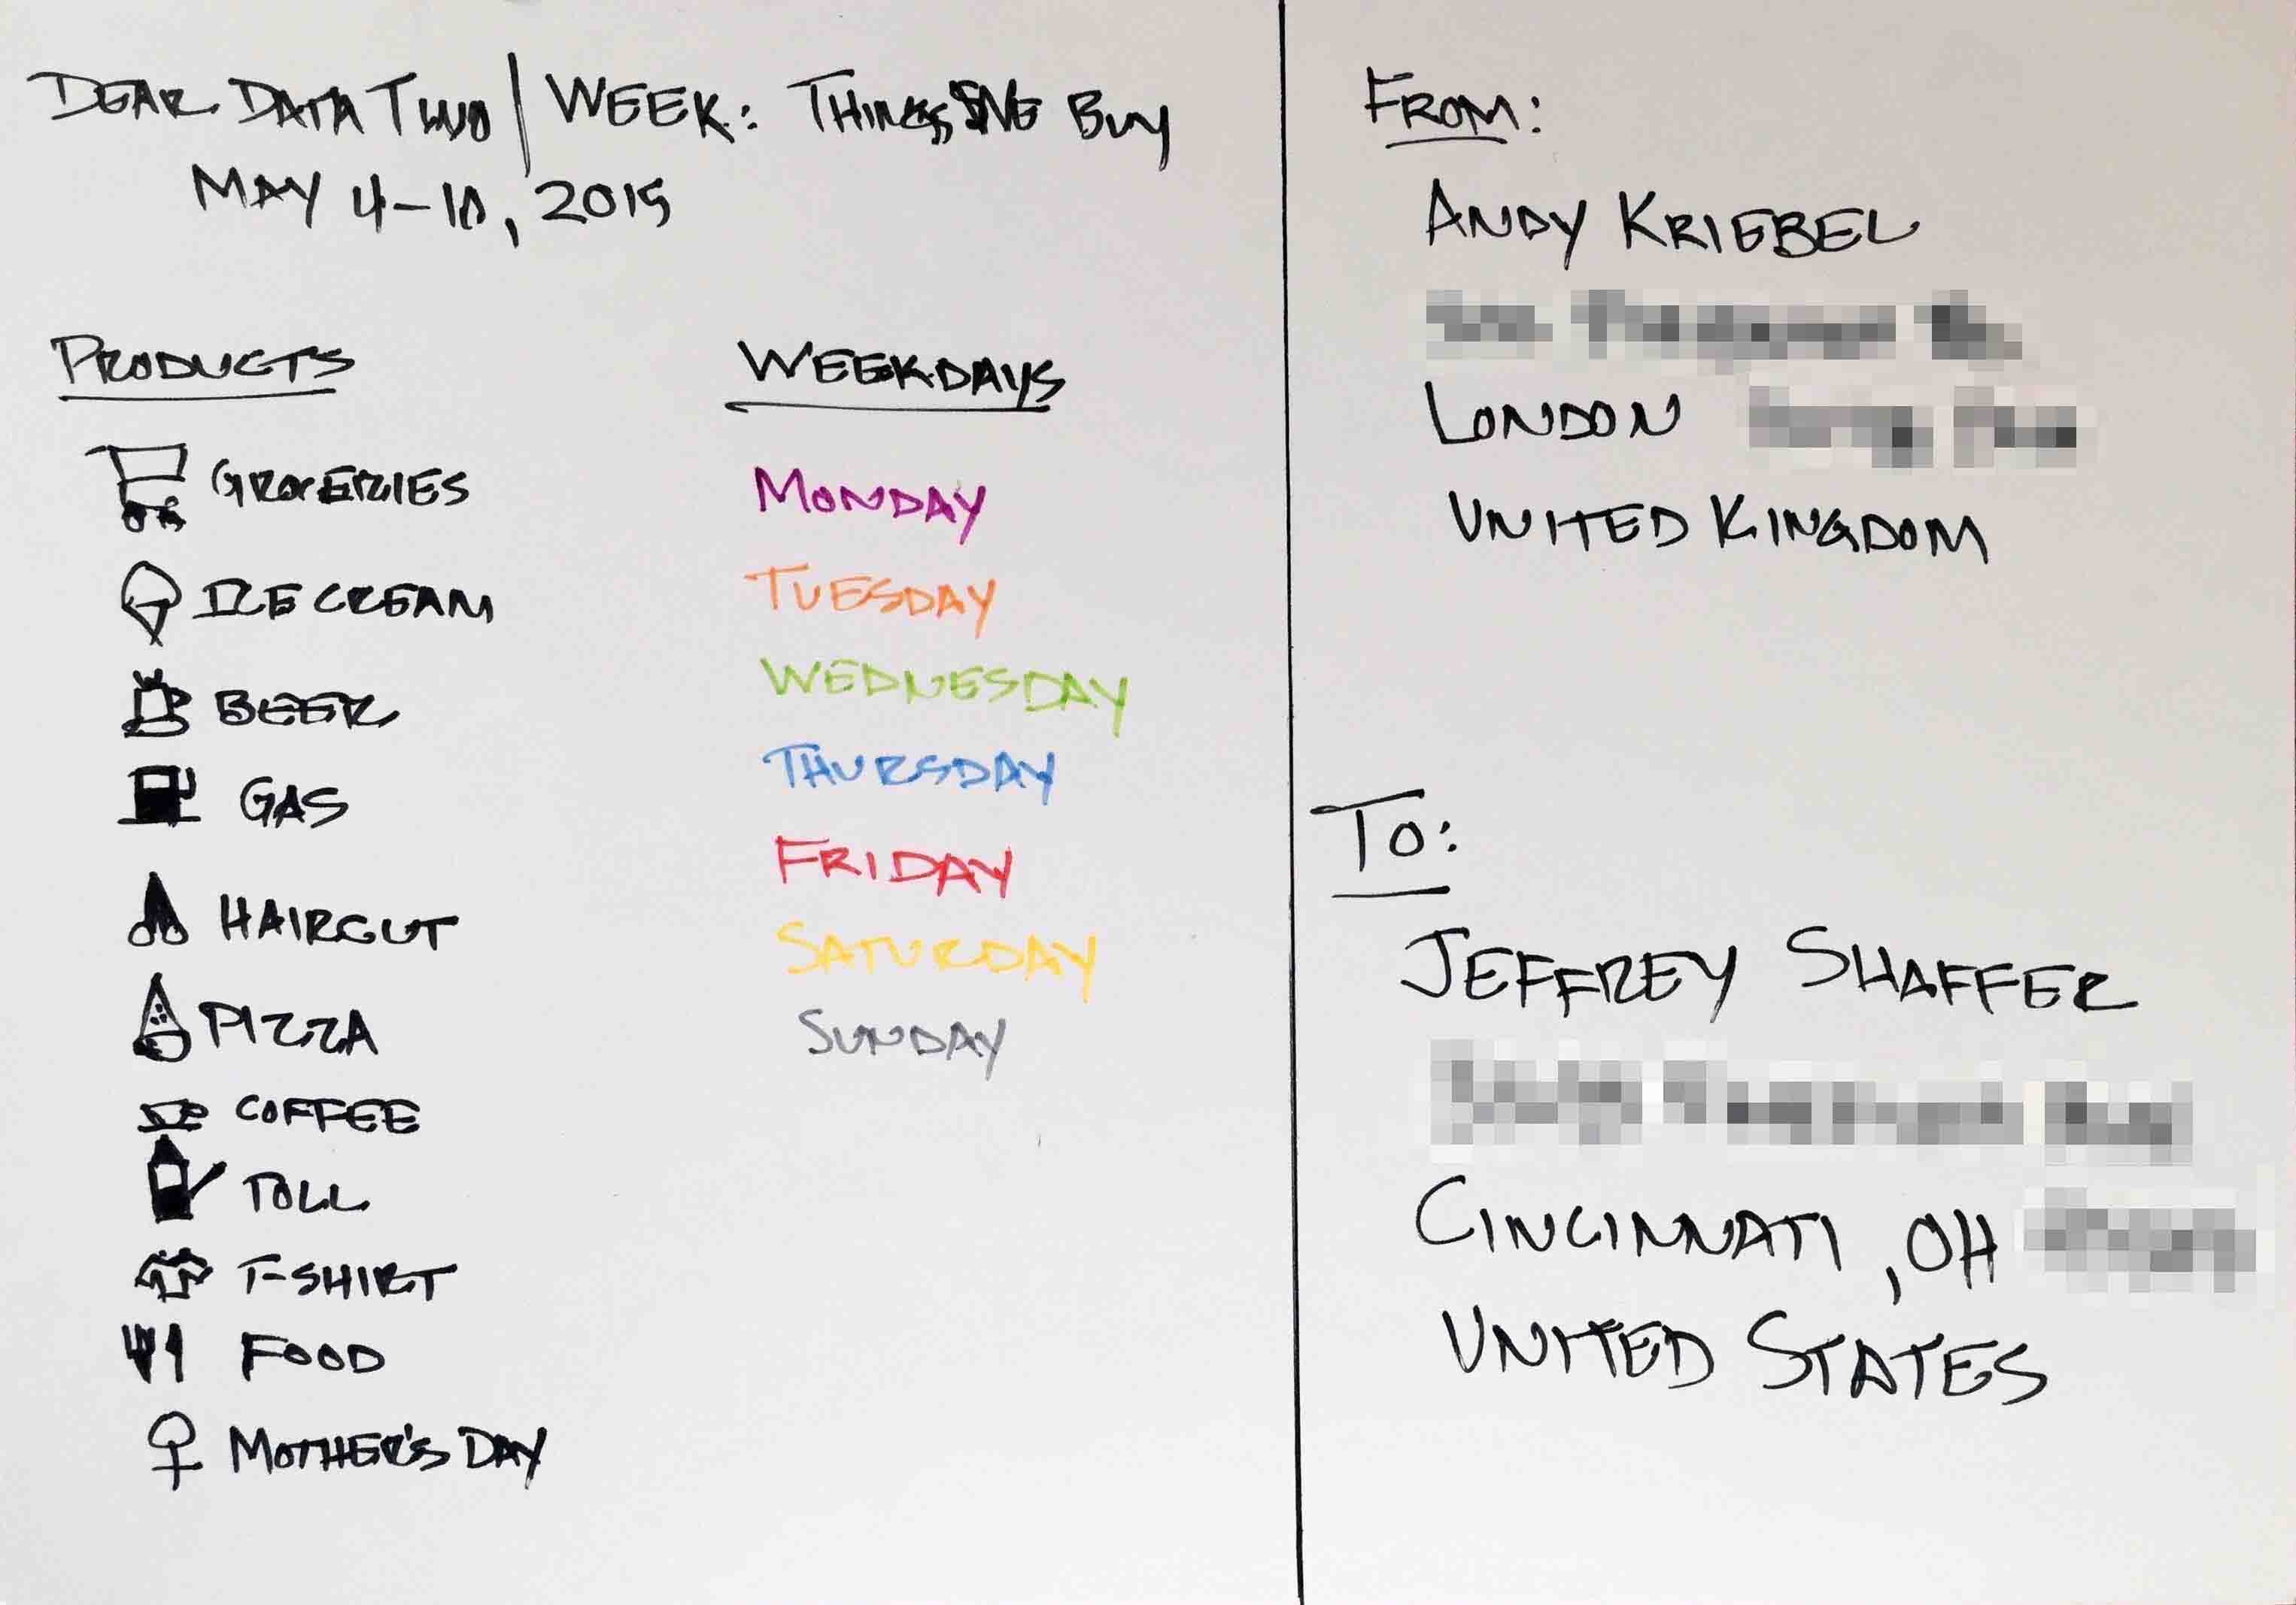 DEAR DATA TWO | WEEK: THINGS WE BUY
MAY 4-10, 2015
PRODUCTS
GROCERIES
ICE CREAM
BEER
GAS
HAIRCUT
PIZZA
COFFEE
TOLL
T-SHIRT
FOOD
MOTHER'S DAY
WEEKDAYS
MONDAY
TUESDAY
WEDNESDAY
THURSDAY
FRIDAY
SATURDAY
SUNDAY
FROM:
ANDY KRIEBEL
LONDON
UNITED KINGDOM
TO:
JEFFREY SHAFFER
CINCINNATI, OH
UNITED STATES